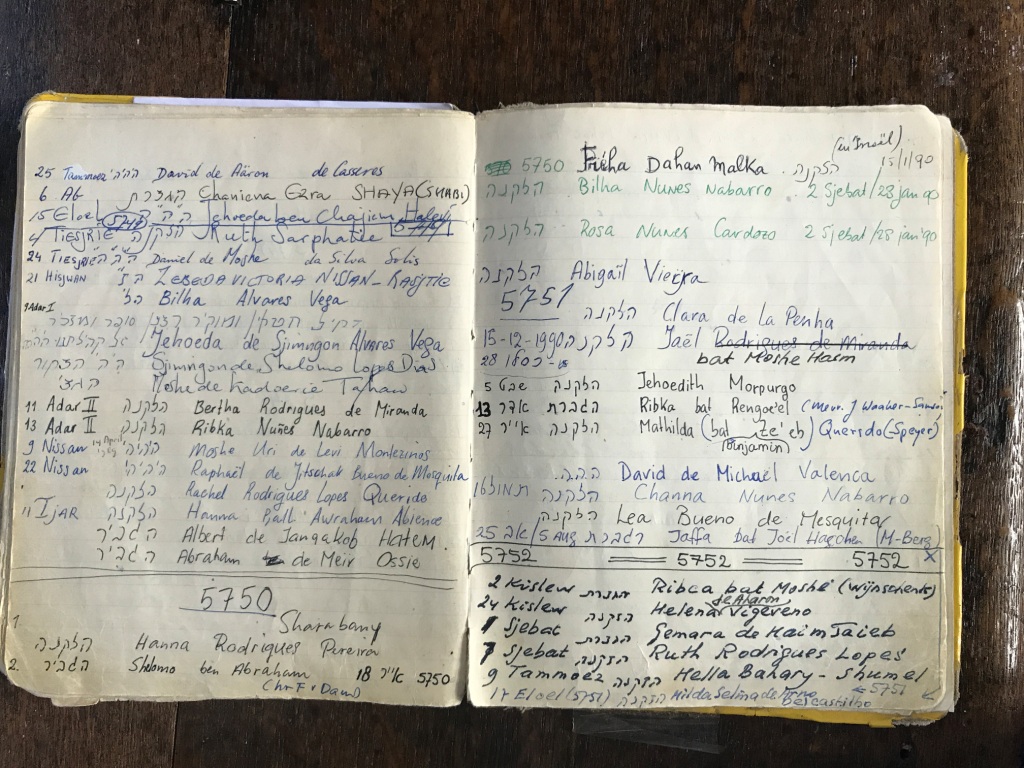 25 Tammoez ההי"ה David de Aäron de Caseres
6 Ab הגברת Chaniena Ezra SHAYA (SHABI)
15 Eloel Jehoeda ben Chajiem Halevi
4 TIESJRIE 5749 הזקנה Ruth Sarphatie 5749
24 TIESJRIE ההי"ה Daniel de Moshe da Silva Solis
21 HISJWAN ZEBEDA VICTORIA NISSAN-
הז' Bilha Alvares Vega
9 Adar I
Jehoeda de Sjimngon Alvares Vega
Sjimngon de Shelomo Lopes Dias
Moshe de
11 Adar II הזקנה Bertha Rodrigues de Miranda
13 Adar II הזקנה Ribka Nuñes Nabarro
9 Nissan ההי"ה Moshe Uri de Levi Montezinos
22 Nissan הה"הי Raphaël de Jitschak Bueno de Mosquita
הזקנה Rachel Rodrigues Lopes Querido
11 IJAR הזקנה Hanna Awraham Abience
הגביר Albert de Jangakob HATEM.
הגביר Abraham de Meir Ossie
5750
1. Sharabany
הזקנה Hanna Rodrigues Pereira
2. הגביר Shlomo ben Abraham 18 אייר 5750
(in Israël)
5750 Friha Dahan Malka הזקנה 15/1/90
הזקנה Bilha Nunes Nabarro 2 Sjebat/28 jan 90
הזקנה Rosa Nunes Cardozo 2 Sjebat/28 jan'90
הזקנה Abigaïl Vieyra
5751 הזקנה Clara de La Penha
15-12-1990 הזקנה Jaël Rodrigues de Miranda
28 כסלו bat Moshe Haim
5 שבט הזקנה Jehoedith Morpurgo
13 אדר הגברת Ribka bat Rengoe'el (Mevr. J
27 אייר הזקנה Mathilda (bat Ze'eb) Querido (Speyer)
(Binjamin)
הה.ה. David de Michaël Valenca
16 תמוז הזקנה Channa Nunes Nabarro
הזקנה Lea Bueno de Mesquita
25 אב/5 Aug הגברת Jaffa bat Joël Hacohen (M-Berg)
5752 5752 5752 x
2 Kislew הגברת Ribca bat Moshé (Wijnschenk)
de Aharon
24 Kislew הזקנה Helena Vigeveno
1 Sjebat הגברת Semara de Haim Taieb
7 Sjebat הזקנה Ruth Rodrigues Lopes
9 Tammoez הזקנה Hella Bahary-Shumel
17 Eloel (5751) הזקנה Hilda Selina de Belcastilho ← 5751